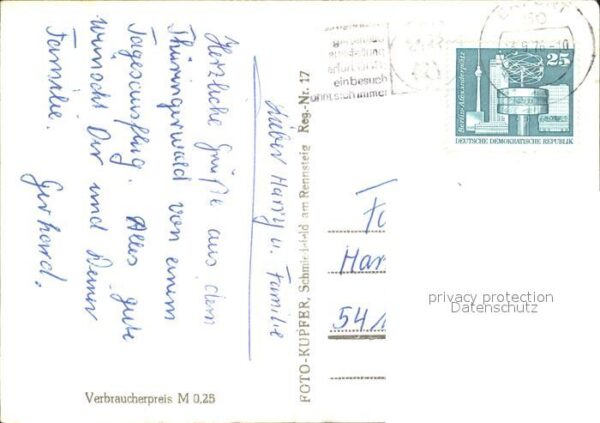 Lieber Harry u. Familie
Herzliche Grüße aus dem
Thüringerwald von einem
Tagesausflug. Alles gute
wünscht Dir und Deiner
Familie.
Gerhard.
Verbraucherpreis M 0,25
FOTO-KUPFER, Schmiedefeld am Rennsteig Reg.-Nr. 17
ein besuch
immer
50
Berlin-Alexanderplatz
25
DEUTSCHE DEMOKRATISCHE REPUBLIK
Har
54
privacy protection
Datenschutz